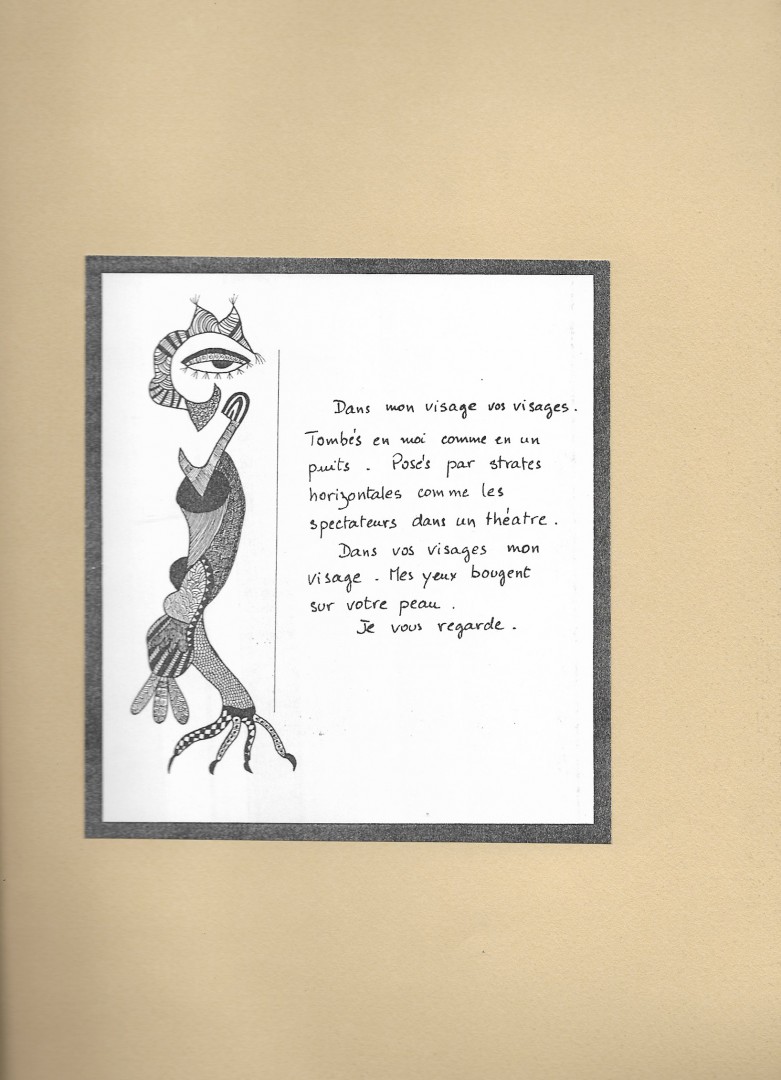 Dans mon visage vos visages.
Tombés en moi comme en un
puits. Posés par strates
horizontales comme les
spectateurs dans un théatre.
Dans vos visages mon
visage. Mes yeux bougent
sur votre peau.
Je vous regarde.